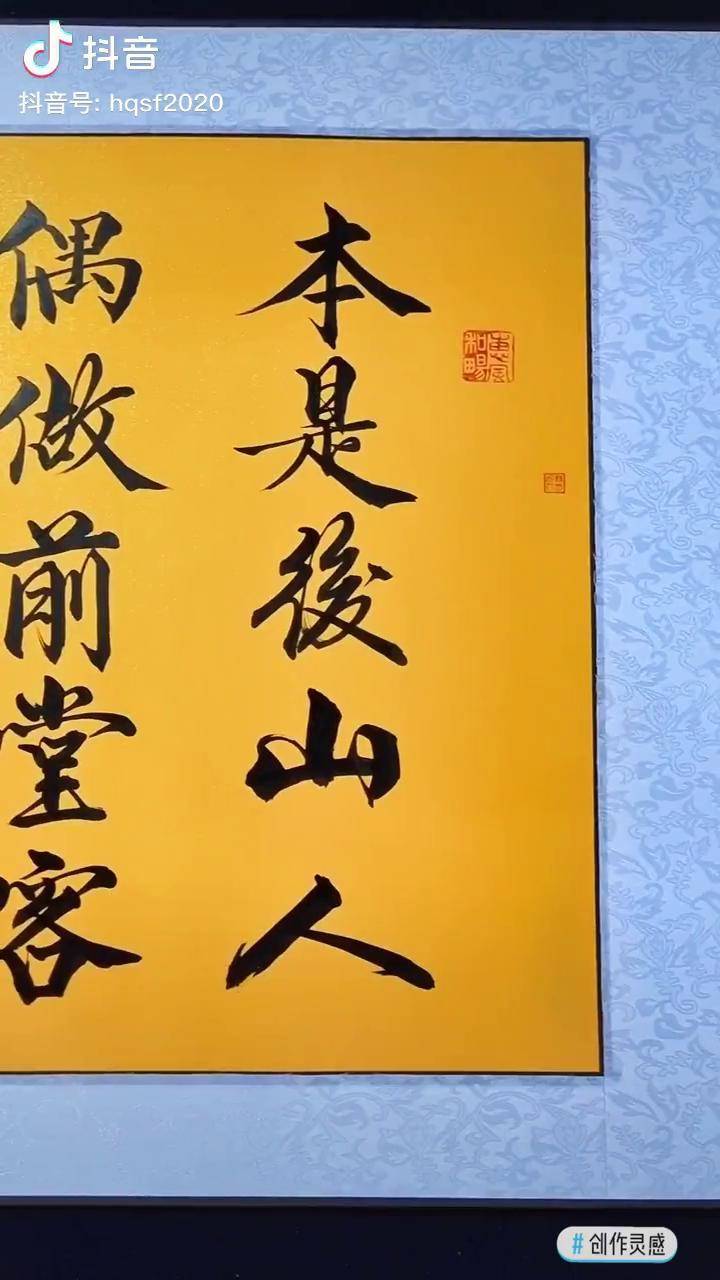 抖音
抖音号: hqsf2020
本是後山人
偶做前堂客
惠風
和暢
#创作灵感